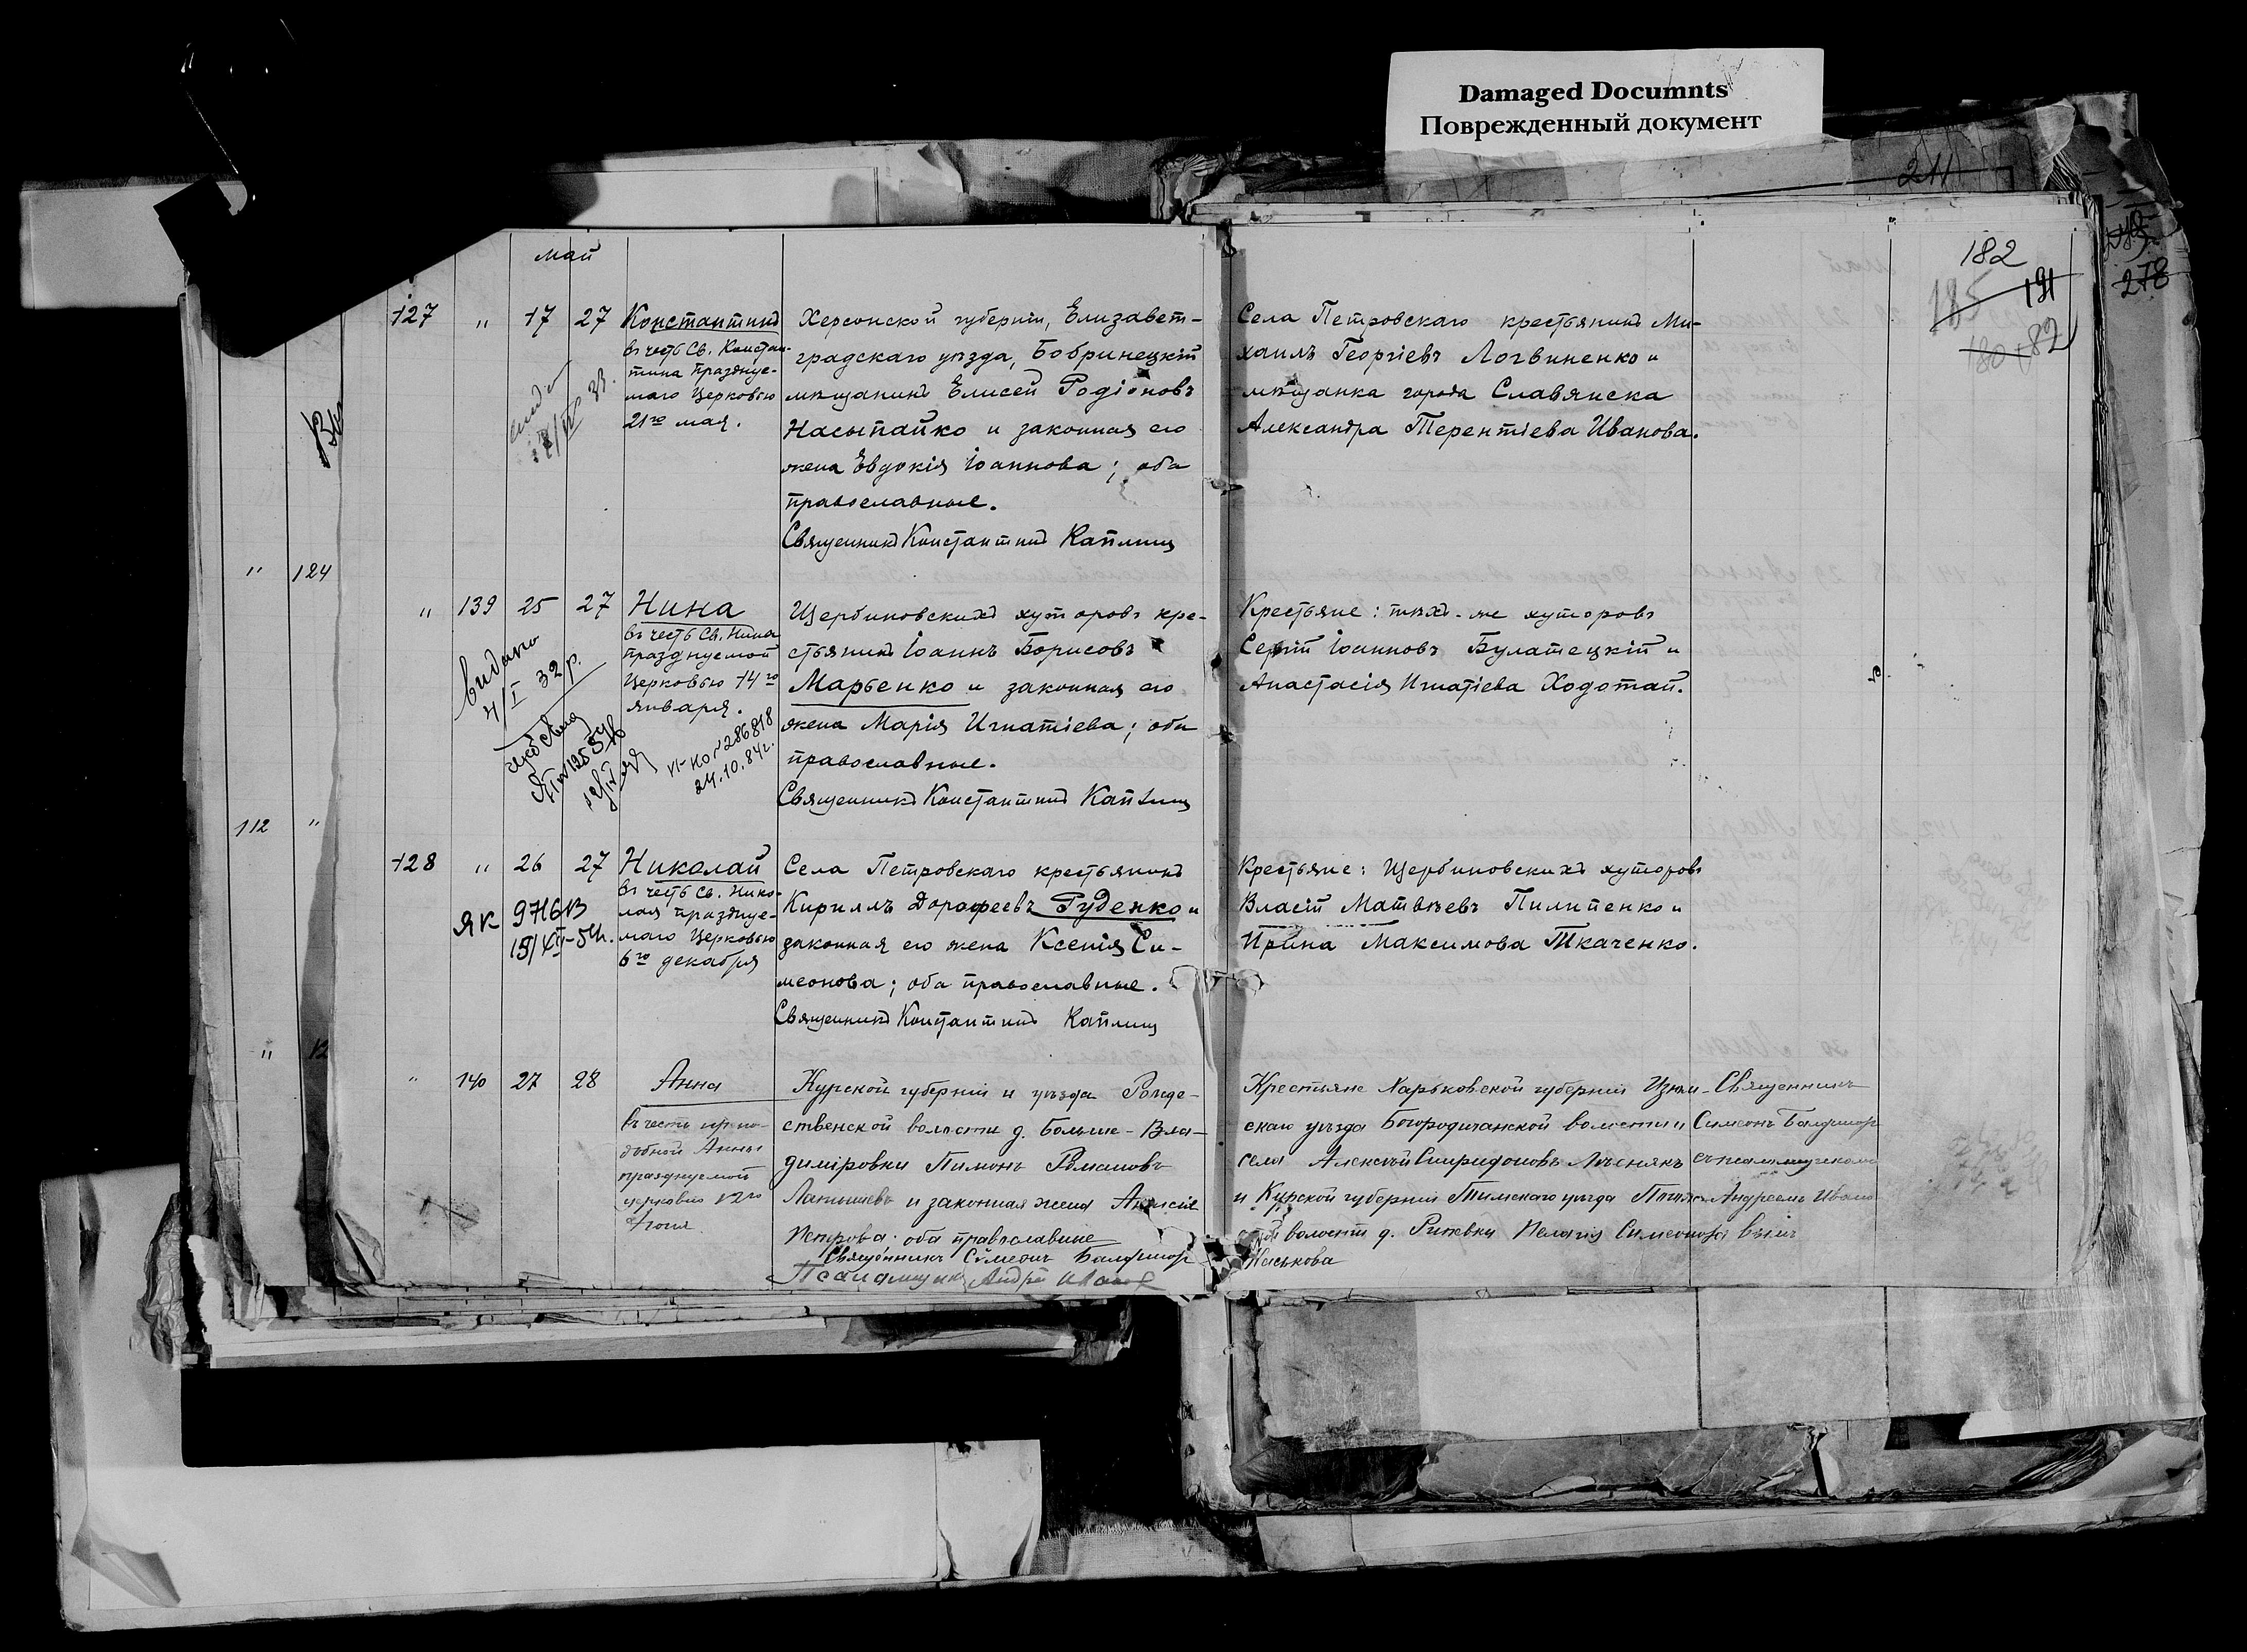 Damaged Documnts
Поврежденный документ
211
182
185 191
180 182
278
май
127 " 17 27 Константинъ
въ честь Св. Констан-
тина празднуе-
маго Церковью
21го мая.
Херсонской губерніи, Елизавет-
градскаго уѣзда, Бобринецкій
мѣщанинъ Елисей Родіоновъ
Насыпайко и законная его
жена Евдокія Іоаннова; оба
православные.
Священникъ Константинъ Каплинъ
Села Петровскаго крестьянинъ Ми-
хаилъ Георгіевъ Логвиненко и
мѣщанка города Славянска
Александра Терентіева Иванова.
" 124
" 139 25 27 Нина
въ честь Св. Нина
празднуемой
Церковью 14го
января.
видано
4/I 32 р.
VI-НО № 286818
24.10.84г.
Щербиновскихъ хуторовъ кре-
стьянинъ Іоаннъ Борисовъ
Марьенко и законная его
жена Марія Игнатіева; оба
православные.
Священникъ Константинъ Каплинъ
Крестьяне: тѣхъ-же хуторовъ
Сергій Іоанновъ Булатецкій и
Анастасія Игнатіева Ходотай.
112 "
128 " 26 27 Николай
въ честь Св. Нико-
лая празднуе-
маго Церковью
6го декабря
ЯК 971613
Села Петровскаго крестьянинъ
Кириллъ Дорофеевъ Руденко и
законная его жена Ксенія Си-
меонова; оба православные.
Священникъ Константинъ Каплинъ
Крестьяне: Щербиновскихъ хуторовъ
Власій Матвѣевъ Пилипенко и
Ирина Максимова Ткаченко.
" 12
" 140 27 28 Анна
въ честь препо-
добной Анны
празднуемой
церковью 12го
Іюня
Курской губерніи и уѣзда Рожде-
ственской волости д. Больше-Вла-
диміровки Пимонъ Романовъ
Латышевъ и законная жена Анисія
Петрова. оба православные
Священникъ Симеонъ Балфиор
Псаломщикъ Андрей Иванов
Крестьяне Харьковской губерніи Изюм-
скаго уѣзда Богородичанской волости и
села Алексѣй Спиридоновъ Лѣснякъ
и Курской губерніи Тимскаго уѣзда
волости д. Рипевки Пелагія Симеонова
Васькова
Священникъ
Симеонъ Балфиор
съ псаломщикомъ
Андреемъ Ивано
вымъ